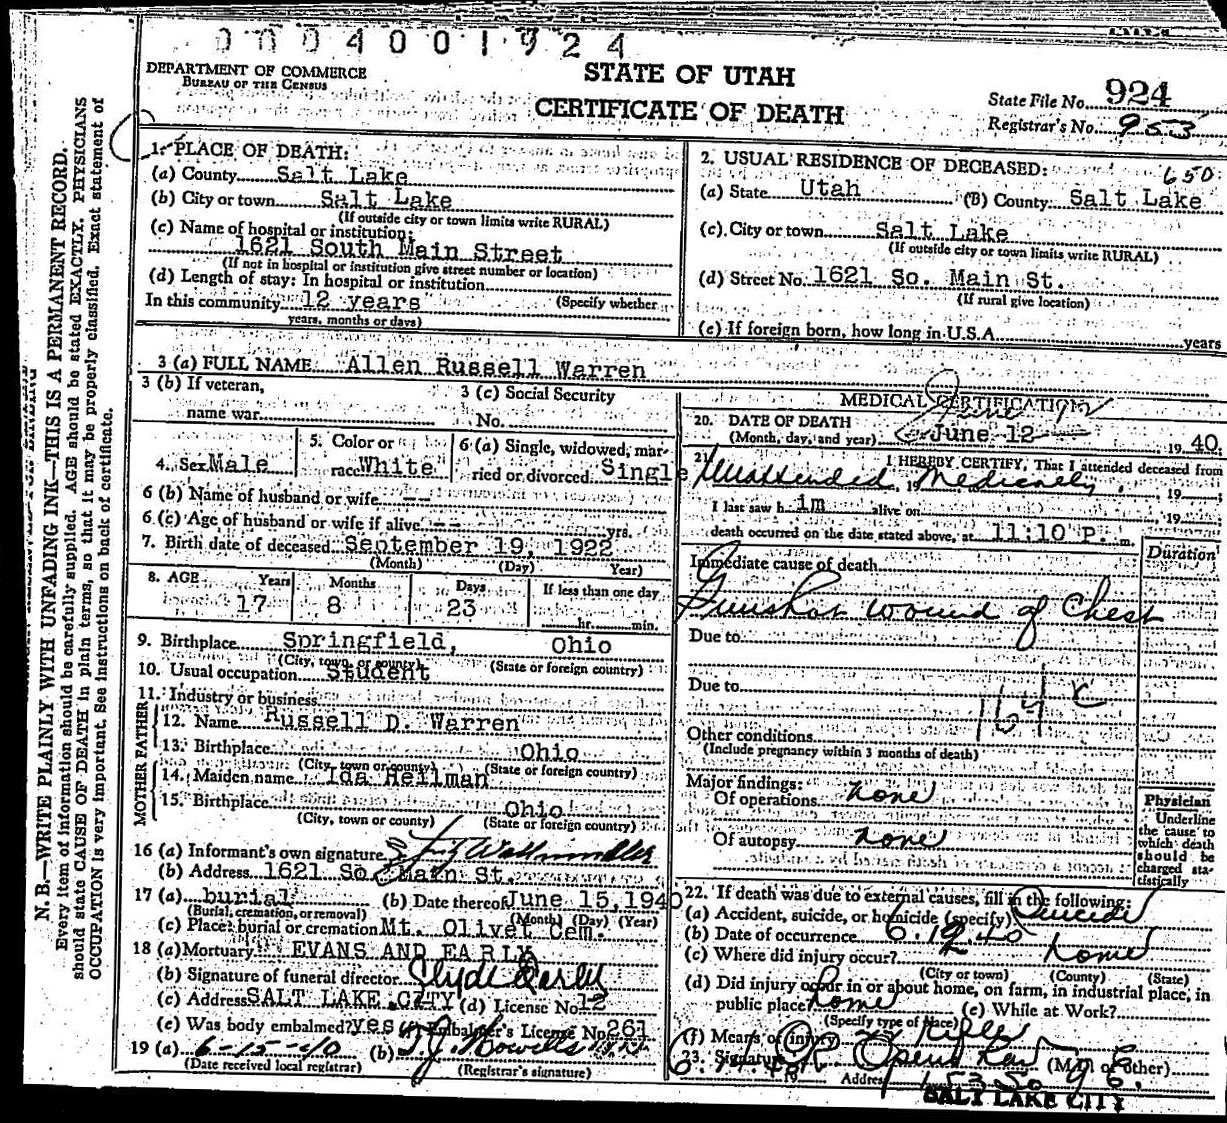 0004001924
DEPARTMENT OF COMMERCE
BUREAU OF THE CENSUS
STATE OF UTAH
CERTIFICATE OF DEATH
State File No. 924
Registrar's No. 953
N. B.—WRITE PLAINLY WITH UNFADING INK—THIS IS A PERMANENT RECORD.
Every item of information should be carefully supplied. AGE should be stated EXACTLY. PHYSICIANS
should state CAUSE OF DEATH in plain terms, so that it may be properly classified. Exact statement of
OCCUPATION is very important. See instructions on back of certificate.
1. PLACE OF DEATH:
(a) County Salt Lake
(b) City or town Salt Lake
(If outside city or town limits write RURAL)
(c) Name of hospital or institution:
1621 South Main Street
(If not in hospital or institution give street number or location)
(d) Length of stay: In hospital or institution
In this community 12 years (Specify whether
years, months or days)
2. USUAL RESIDENCE OF DECEASED: 650
(a) State Utah (B) County Salt Lake
(c) City or town Salt Lake
(If outside city or town limits write RURAL)
(d) Street No. 1621 So. Main St.
(If rural give location)
(e) If foreign born, how long in U.S.A. years
3 (a) FULL NAME Allen Russell Warren
3 (b) If veteran,
name war
3 (c) Social Security
No.
4. Sex Male
5. Color or
race White
6 (a) Single, widowed, mar-
ried or divorced Single
6 (b) Name of husband or wife --
6 (c) Age of husband or wife if alive -- yrs.
7. Birth date of deceased September 19, 1922
(Month) (Day) Year)
8. AGE Years Months Days If less than one day
17 8 23 hr. min.
9. Birthplace Springfield, Ohio
(City, town or county) (State or foreign country)
10. Usual occupation Student
11. Industry or business
FATHER
12. Name Russell D. Warren
13. Birthplace Ohio
(City, town or county) (State or foreign country)
MOTHER
14. Maiden name Ida Heilman
15. Birthplace Ohio
(City, town or county) (State or foreign country)
16 (a) Informant's own signature
(b) Address 1621 So. Main St.
17 (a) burial (b) Date thereof June 15, 1940
(Burial, cremation, or removal) (Month) (Day) (Year)
(c) Place: burial or cremation Mt. Olivet Cem.
18 (a) Mortuary EVANS AND EARLY
(b) Signature of funeral director Clyde Early
(c) Address SALT LAKE CITY (d) License No. 12
(e) Was body embalmed? yes (f) Embalmer's License No. 261
19 (a) 6-15-40 (b) T. J. Howells
(Date received local registrar) (Registrar's signature)
MEDICAL CERTIFICATION
June
20. DATE OF DEATH
(Month, day, and year) June 12 19 40
21. I HEREBY CERTIFY, That I attended deceased from
Unattended, 19 Medically, 19
I last saw h im alive on 19
death occurred on the date stated above, at 11:10 P. m.
Immediate cause of death
Duration
Gunshot wound of Chest
Due to
Due to
164 c
Other conditions
(Include pregnancy within 3 months of death)
Major findings:
Of operations none
Of autopsy none
Physician
Underline
the cause to
which death
should be
charged sta-
tistically
22. If death was due to external causes, fill in the following:
(a) Accident, suicide, or homicide (specify) Suicide
(b) Date of occurrence 6.12.40
(c) Where did injury occur? home
(City or town) (County) (State)
(d) Did injury occur in or about home, on farm, in industrial place, in
public place? home (e) While at Work?
(Specify type of place)
(f) Means of injury Rifle
23. Signature (M.D. or other)
19 Address
SALT LAKE CITY